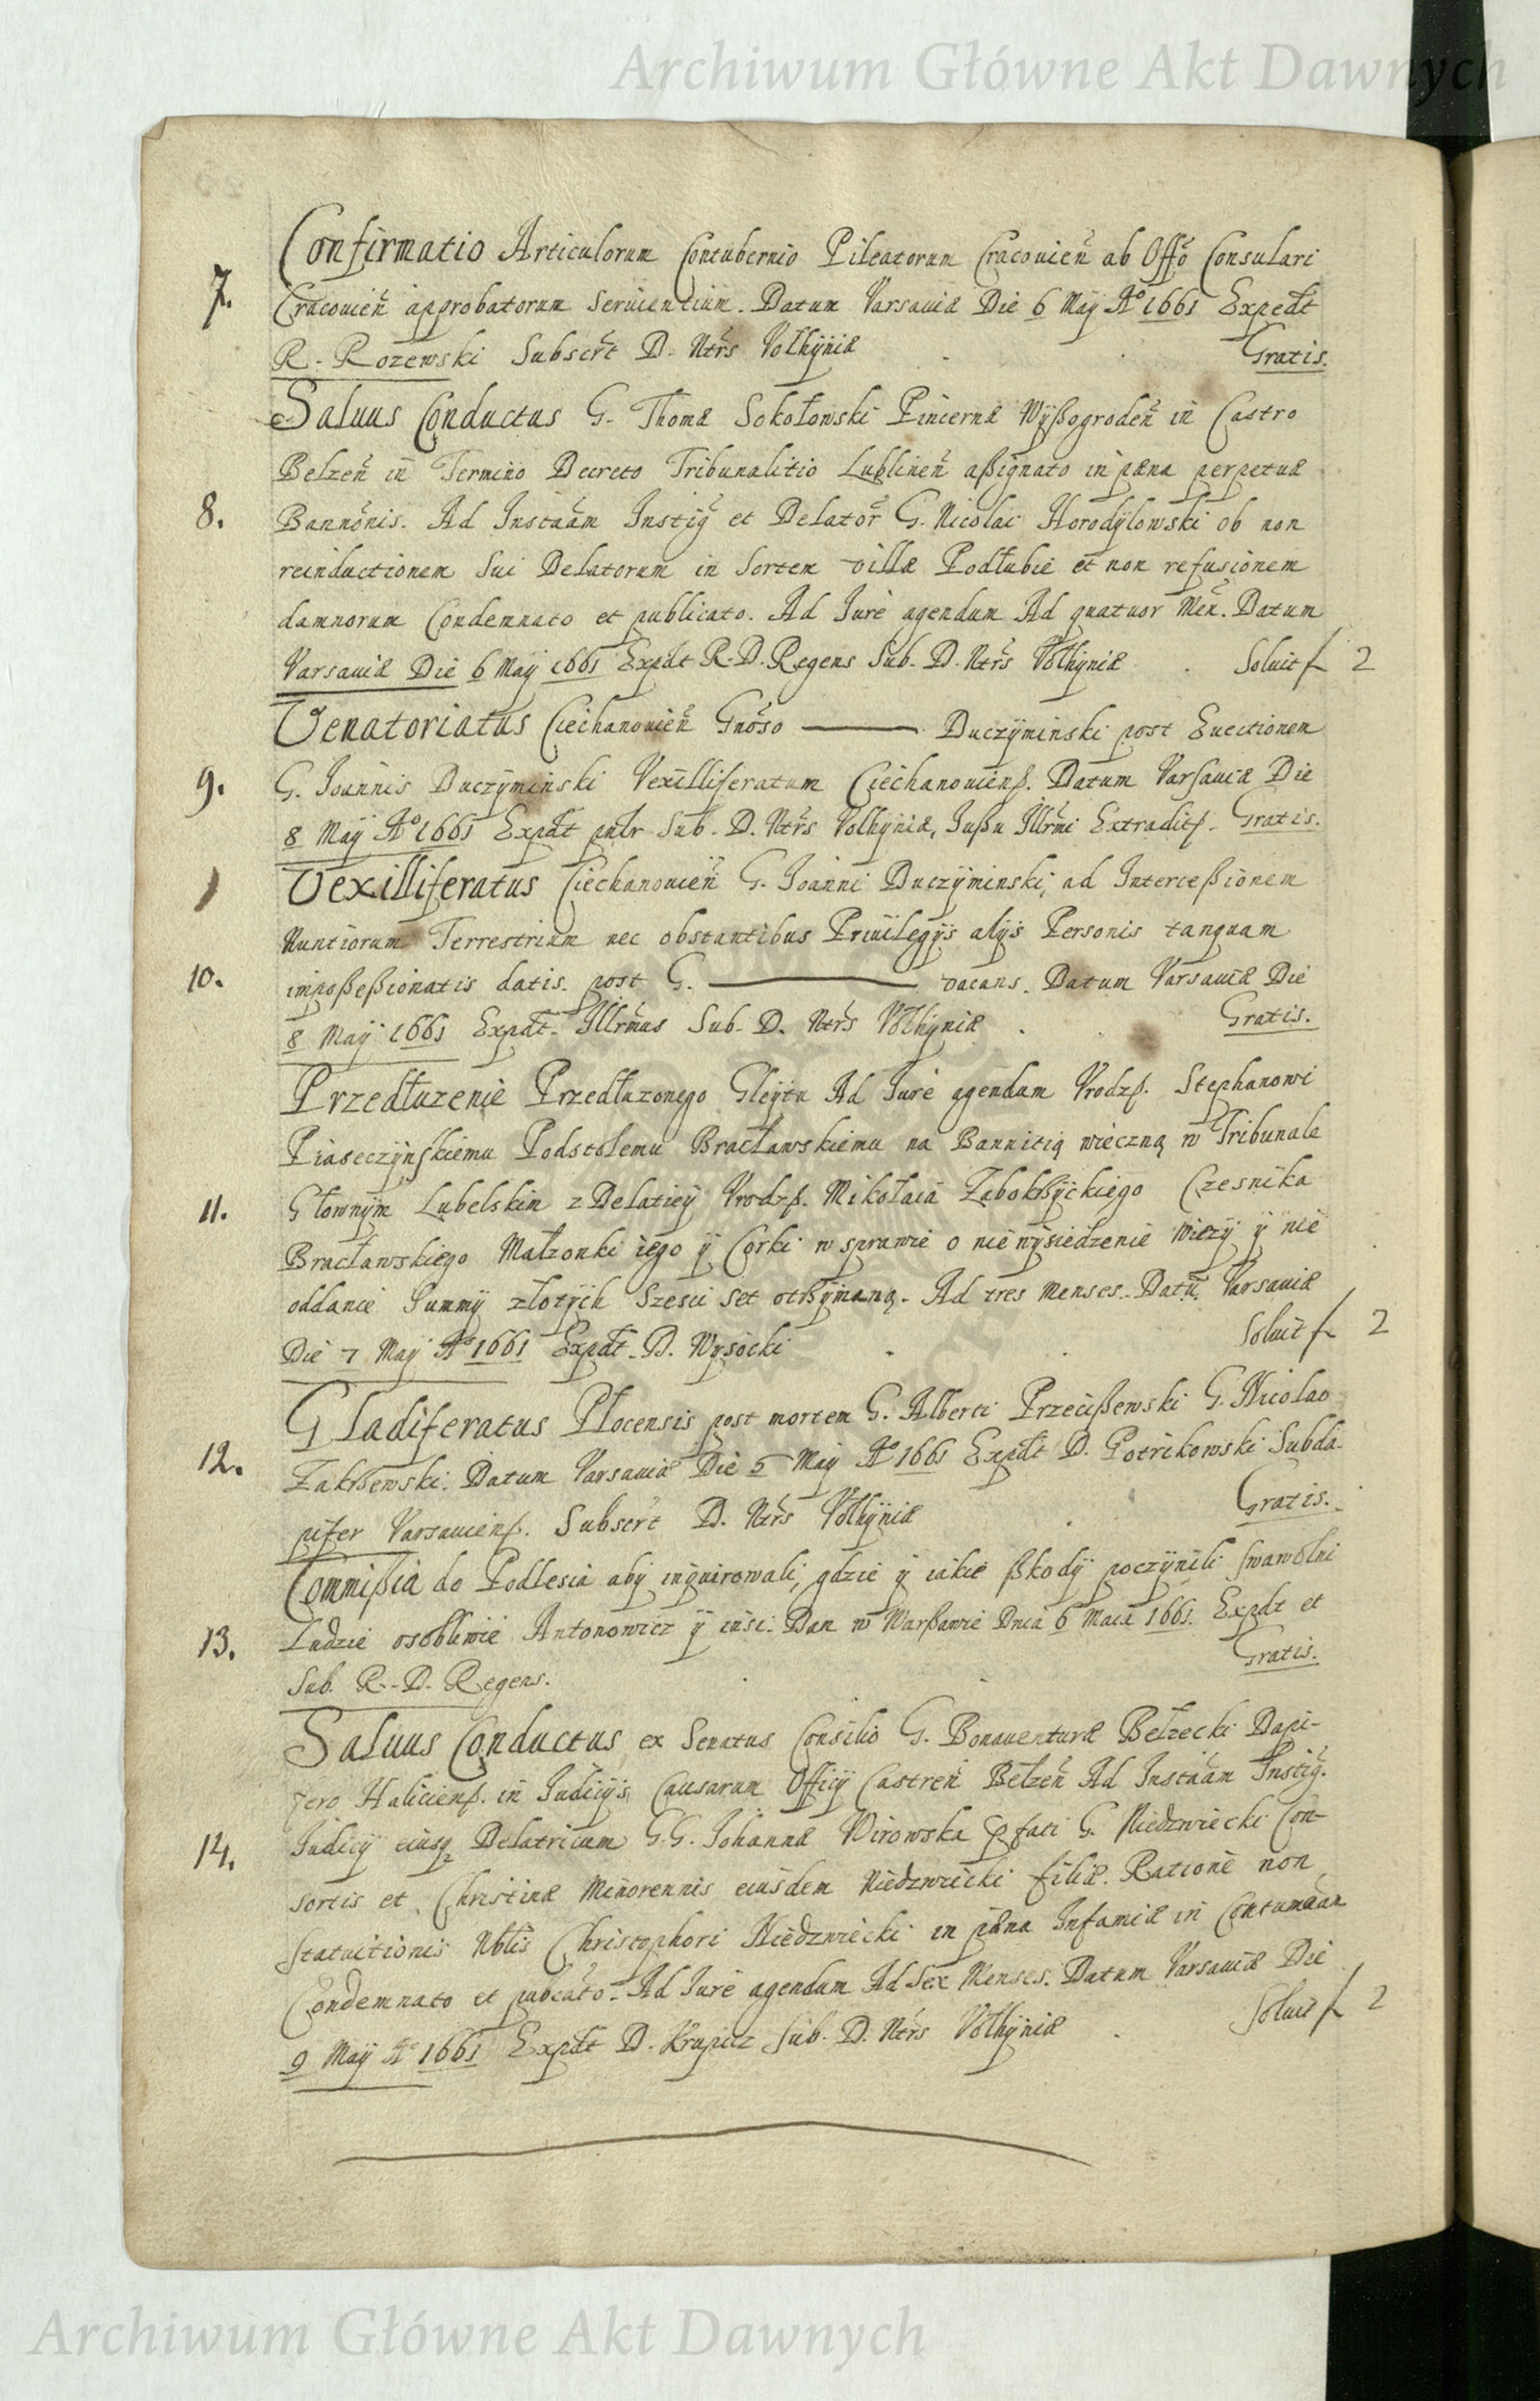 Archiwum Główne Akt Dawnych
Confirmatio Articulorum Contubernio Pileatorum Cracovień ab Offo Consulari
7. Cracovień approbatorum servientium. Datum Varsaviæ Die 6 Maÿ Ao 1661 Expedt
R. Rozewski Subscrt D. Ntrs Volhÿniæ Gratis.
Saluus Conductus G. Thomæ Sokołowski Pincernæ Wÿßogrodeń in Castro
Belzeń in Termino Decreto Tribunalitio Lublineń aßignato in pæna perpetuæ
8. Bannonis. Ad Instnam Instig et Delator G. Nicolai Horodÿlowski ob non
reinductionem sui Delatorum in sortem villæ Podłubie et non refusionem
damnorum Condemnato et publicato. Ad Jure agendum Ad quatuor Meń. Datum
Varsaviæ Die 6 Maÿ 1661 Expdt R. D. Regens Sub. D. Ntrs Volhÿniæ . Soluit f 2
Venatoriatus Ciechanovień Gnoso ——— Duczÿminski post Evectionem
9. G. Joannis Duczÿminski Vexilliferatum Ciechanoviensß. Datum Varsaviæ Die
8 Maÿ Ao 1661 Expdt pntr Sub. D. Ntrs Volhÿniæ, Jußu Illrmi Extraditß. Gratis.
Vexilliferatus Ciechanovień G. Joanni Duczÿminski, ad Interceßionem
Nuntiorum Terrestrium nec obstantibus Privilegÿs alÿs Personis tanquam
10. impoßeßionatis datis. post G. ——— vacans. Datum Varsaviæ Die
8 Maÿ 1661 Expdt. Illrmus Sub. D. Ntrs Volhÿniæ . Gratis.
Przedłuzenie Przedłuzonego Gleÿtu Ad Jure agendum Vrodzß. Stephanowi
Piaseczÿnskiemu Podstołemu Bracławskiemu na Bannitią wieczną w Tribunale
11. Głownÿm Lubelskim z Delatieÿ Vrodzß. Mikołaia Zabokßÿckiego Czesnika
Bracławskiego Małzonki iego ÿ Corki w sprawie o nie wÿsiedzenie wiezÿ ÿ nie
oddanie Summÿ złotÿch szesci set otßÿmaną. Ad tres menses. Datū Varsaviæ
Die 7 Maÿ Ao 1661 Expdt. D. Wÿsocki . Soluit f 2
Gladiferatus Płocensis post mortem G. Alberti Przecißewski G. Nicolao
12. Zakßewski. Datum Varsaviæ Die 5 Maÿ Ao 1661 Expdt D. Potrikowski Subda-
pifer Varsaviensß. Subscrt D. Ntrs Volhÿniæ . Gratis.
Commißia do Podlesia abÿ inquirowali, gdzie ÿ iakie ßkodÿ poczÿnili swawolni
13. Ludzie osobliwie Antonowicz ÿ insi. Dan w Warßawie Dnia 6 Maia 1661. Expdt et
Sub. R. D. Regens. Gratis.
Saluus Conductus ex Senatus Consilio G. Bonaventuræ Bełzecki Dapi-
fero Haliciensß. in Judicÿs Causarum Officÿ Castreń Bełzeń Ad Instnam Instig.
14. Judicÿ eiusq Delatricum G. G. Johannæ Wirowska p fati G. Niedzwiecki Con-
sortis et Christinæ Minorennis eiusdem Niedzwiecki filiæ. Ratione non
statuitionis Nblis Christophori Niedzwiecki in pæna Infamiæ in Contumaam
Condemnato et pubcato. Ad Jure agendum Ad Sex Menses. Datum Varsaviæ Die
9 Maÿ Ao 1661 Expdt D. Krupicz Sub. D. Ntrs Volhÿniæ . Soluit f 2
Archiwum Główne Akt Dawnych